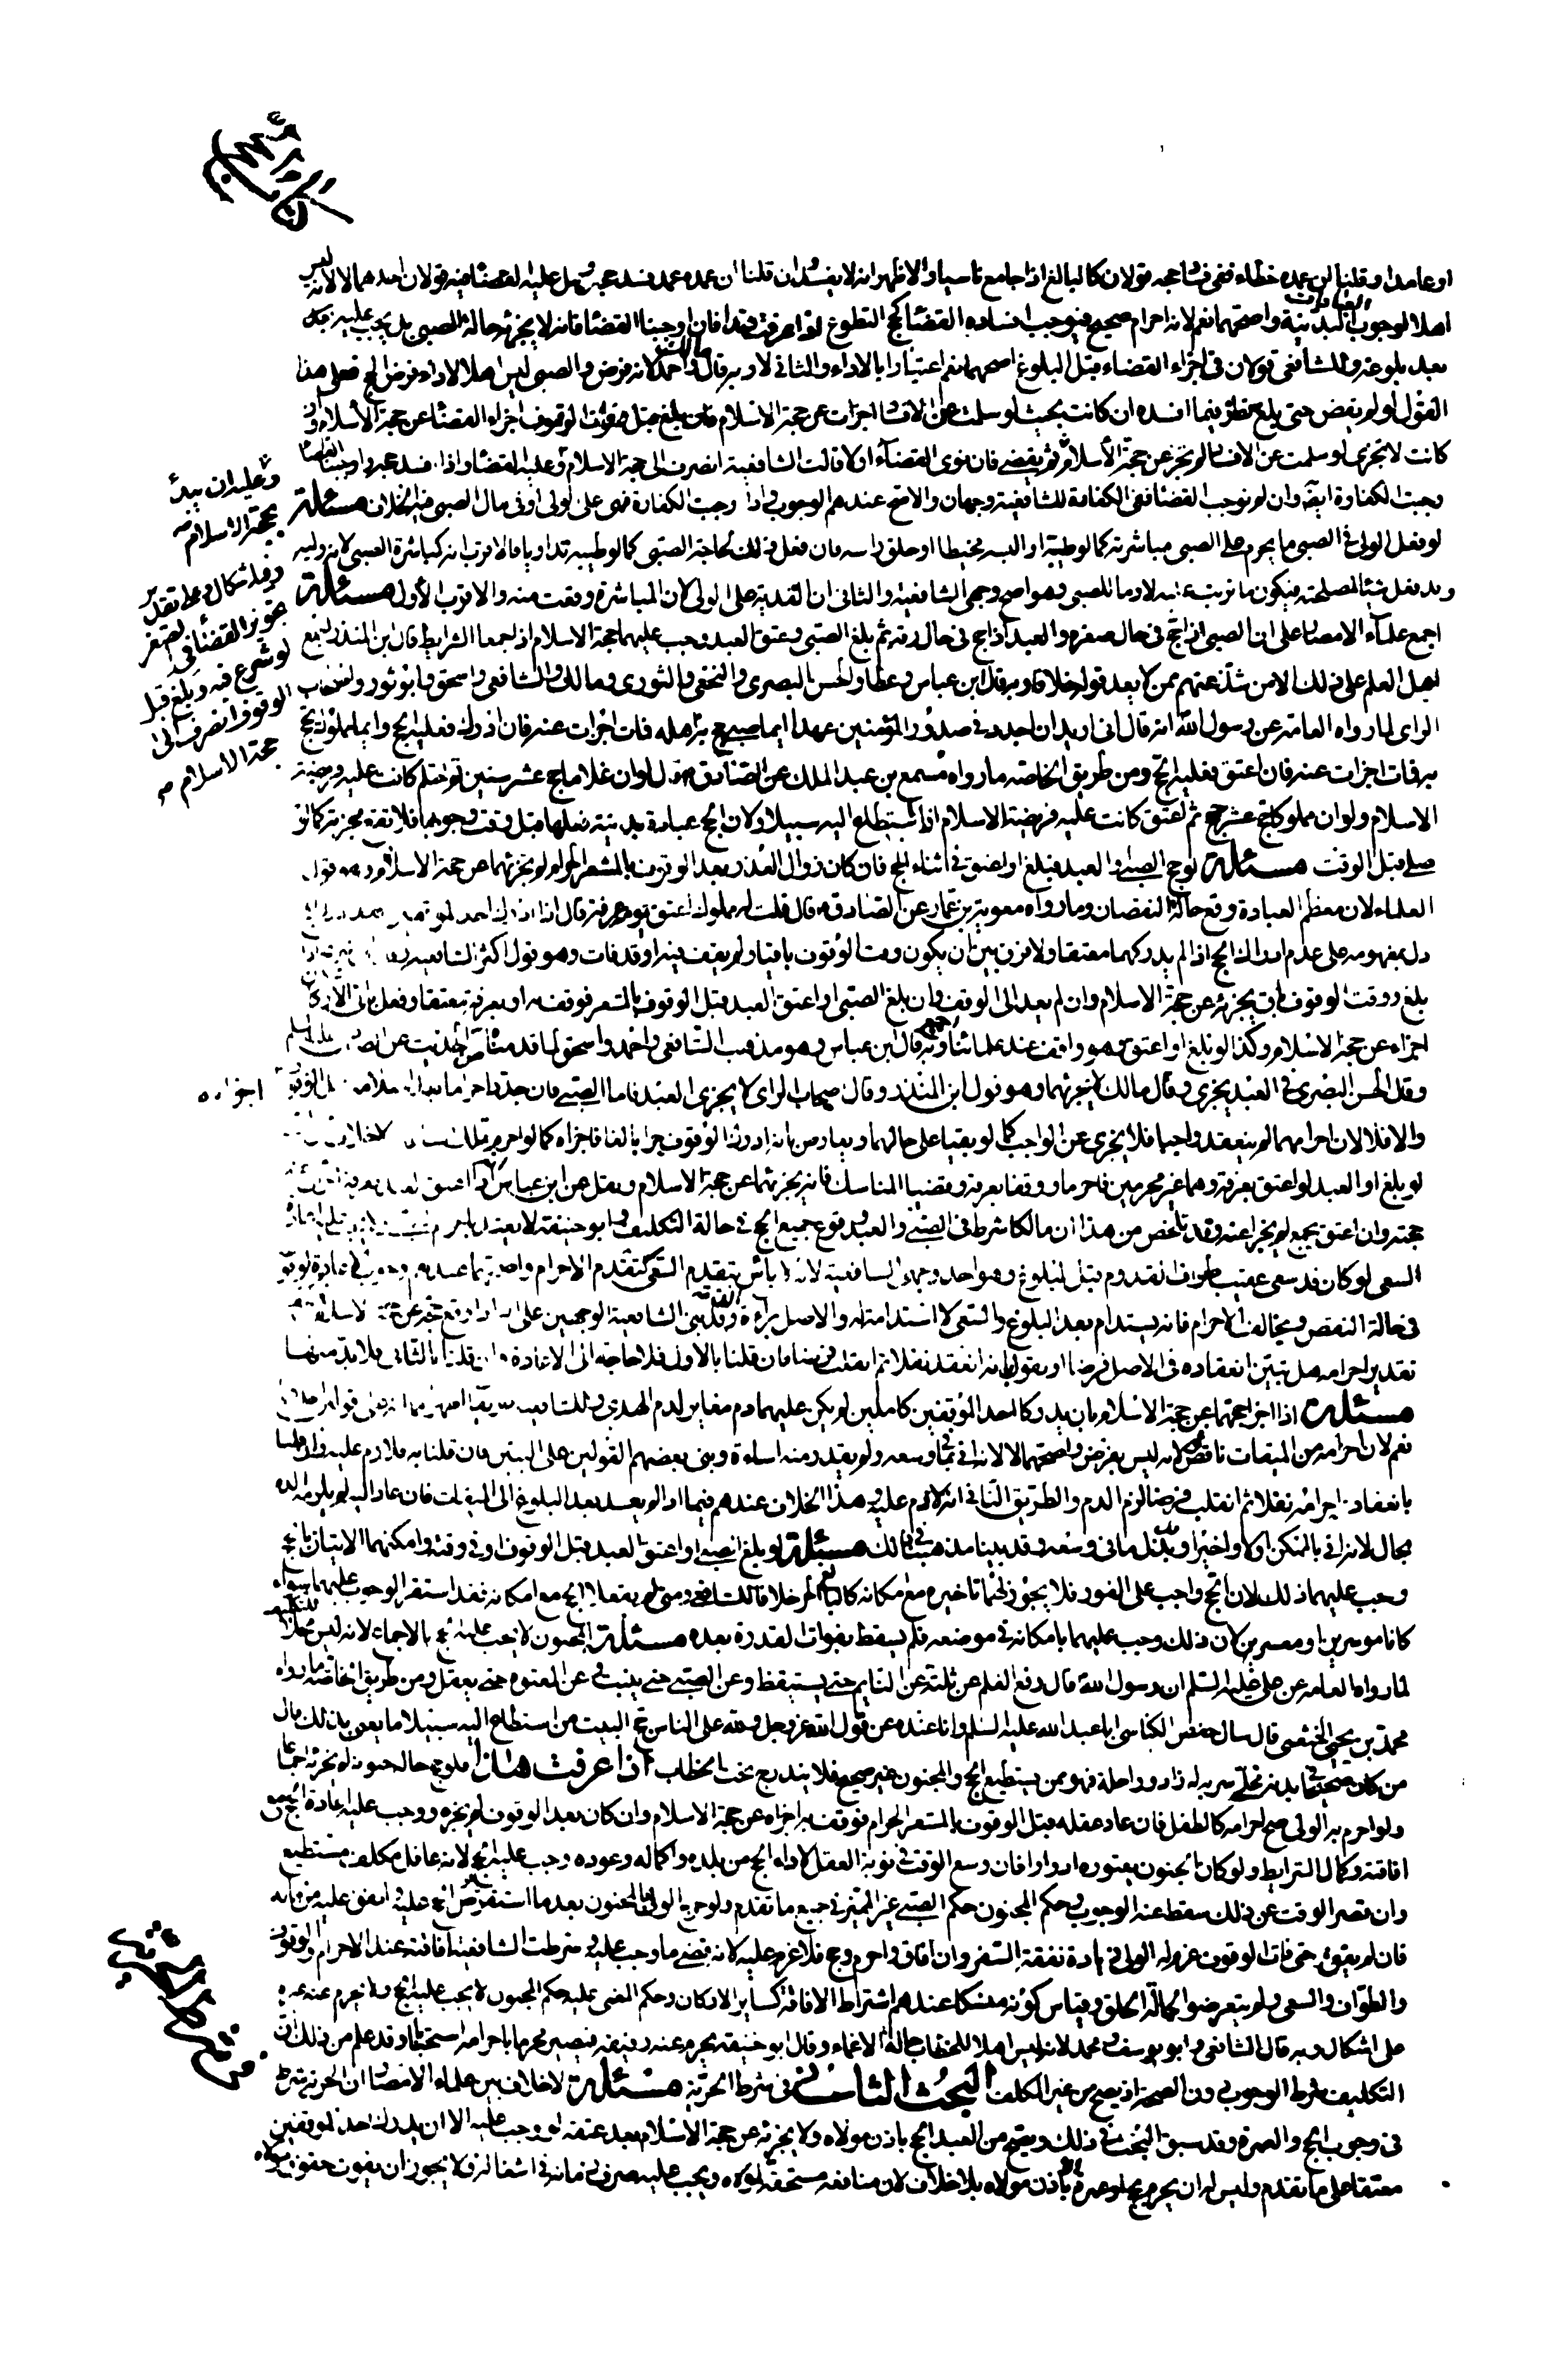 او عامدا وقلنا ان عمده خطاء ففى فساد حجه قولان كالبالغ اذا جامع ناسيا والاظهر انه لا يفسد وان قلنا ان عمده عمد فسد حجه وهل عليه القضاء فيه قولان احدهما لا لانه ليس
اهلا لوجوب العبادات البدنية واصحهما نعم لانه احرام صحيح فيوجب افساده القضاء كحج التطوع اذا عرفت هذا فان اوجبنا القضاء فانه لا يجزئه حالة الصبى بل يجب عليه
بعد بلوغه وللشافعى قولان فى اجزاء القضاء قبل البلوغ اصحهما نعم اعتبارا بالاداء والثانى لا وبه قال مالك واحمد لانه فرض والصبى ليس اهلا لاداء فرض الحج فعلى هذا
القول لو لم يقض حتى بلغ نظر فيما افسده ان كانت بحيث لو سلمت عن الافساد اجزأت عن حجة الاسلام فان بلغ قبل فوات الوقوف اجزاه القضاء عن حجة الاسلام وان
كانت لا تجزى لو سلمت عن الافساد لم يجز عن حجة الاسلام ثم يقضى فان نوى القضاء اولا قالت الشافعية انصرف الى حجة الاسلام وعليه القضاء واذا فسد حجه واوجبنا القضاء
وجبت الكفارة ايضا وان لم نوجب القضاء ففى الكفارة للشافعية وجهان والاصح عندهم الوجوب واذا وجبت الكفارة فهى على الولى او فى مال الصبى فيه الخلاف مسئلة
لو فعل الولى فى الصبى ما يحرم على الصبى مباشرته كما لو طيبه او البسه مخيطا او حلق راسه فان فعل ذلك لحاجة الصبى كما لو طيبه تداويا فالاقرب انه كمباشرة الصبى لانه وليه
وقد فعل شيئا لمصلحته فيكون ما ترتب عليه لازما للصبى وهو اصح وجهى الشافعية والثانى ان الفدية على الولى لان المباشرة وقعت منه والاقرب الاول مسئلة
اجمع علماء الامصار على ان الصبى اذا حج فى حال صغره والعبد اذا حج فى حال رقه ثم بلغ الصبى وعتق العبد وجب عليهما حجة الاسلام اذا جمعا الشرايط قال ابن المنذر اجمع
اهل العلم على ذلك الا من شذ عنهم ممن لا يعد قوله خلافا وبه قال ابن عباس وعطا والحسن البصرى والنخعى والثورى ومالك والشافعى واسحق وابو ثور واصحاب
الراى لما رواه العامة عن رسول الله انه قال انى اريد ان اجدد فى صدور المؤمنين عهدا ايما صبى حج به اهله فمات اجزأت عنه فان ادرك فعليه الحج وايما مملوك حج
به فمات اجزأت عنه فان اعتق فعليه الحج ومن طريق الخاصة ما رواه مسمع بن عبد الملك عن الصادق قال لو ان غلاما حج عشر سنين ثم احتلم كانت عليه فريضة
الاسلام ولو ان مملوكا حج عشر حجج ثم اعتق كانت عليه فريضة الاسلام اذا استطاع اليه سبيلا ولان الحج عبادة بدنية فعلها قبل وقت وجوبها فلا تقع مجزية كما لو
صلى قبل الوقت مسئلة لو حج الصبى او العبد فبلغ او اعتق فى اثناء الحج فان كان زوال العذر بعد الوقوف بالمشعر الحرام لم يجزئهما عن حجة الاسلام وهو قول
العلماء لان معظم العبادة وقع حالة النقصان وما رواه معوية بن عمار عن الصادق قال قلت له مملوك اعتق يوم عرفة قال اذا ادرك احد الموقفين فقد ادرك الحج
دل بمفهومه على عدم ادراك الحج اذا لم يدركهما معتقا ولا فرق بين ان يكون وقت الوقوف باقيا ولم يقف فيه او قد فات وهو قول اكثر الشافعية
بلغ ووقت الوقوف باق يجزئه عن حجة الاسلام وان لم يعد الى الوقف وان بلغ الصبى او اعتق العبد قبل الوقوف بالمشعر فوقف به او بعرفة معتقا وفعل باقى الاركان
اجزاه عن حجة الاسلام وكذا لو بلغ او اعتق وهو واقف عند علمائنا اجمع وبه قال ابن عباس وهو مذهب الشافعى واحمد واسحق لما قدمناه
وقال الحسن البصرى فى العبد يجزى وقال مالك لا يجزئهما وهو قول ابن المنذر وقال اصحاب الراى لا يجزى العبد فاما الصبى فان جدد احراما
والا فلا لان احرامهما لم ينعقد واجبا فلا يجزى عن الواجب كما لو بقيا على حالهما ويعارض بانه ادرك الوقوف حرا بالغا فاجزاه كما لو احرم تلك
لو بلغ او العبد لو اعتق بعرفة وهما غير محرمين فاحرما ووقفا بعرفة وقضيا المناسك فانه يجزئهما عن حجة الاسلام ونقل عن ابن عباس اذا اعتق العبد بعرفة
حجته وان اعتق بجمع لم يجز عنه وقد تلخص من هذا ان مالكا شرط فى الصبى والعبد وقوع جميع الحج فى حالة التكليف وابو حنيفة لا يعتد
السعى لو كان قد سعى عقيب طواف القدوم قبل البلوغ وهو احد وجهى الشافعية لانه لا باس بتقدم السعى كتقدم الاحرام
فى حالة النقص ويخالف الاحرام فانه يستدام بعد البلوغ والسعى لا استدامة له والاصل براءة الذمة وقد بنى الشافعية الوجهين على انه اذا وقع حجه عن حجة الاسلام
تقدير احرامه هل نتبين انعقاده فى الاصل فرضا او نقول بانه انعقد نفلا ثم انقلب فرضا فان قلنا بالاول فلا حاجة الى الاعادة وان قلنا بالثانى فلا بد منها
مسئلة اذا اجزأ حجهما عن حجة الاسلام بان يدركا احد الموقفين كاملين لم يكن عليهما دم مغاير لدم الهدى
نعم لان احرامه من الميقات ناقص لانه ليس بفرض واصحهما لا لانه اتى بما فى وسعه ولم يصدر منه اساءة وبنى بعضهم القولين على التبين فان قلنا به فلا دم عليه وان قلنا
بانعقاد احرامه نفلا ثم انقلب فرضا لزم الدم والطريق الثانى انه لا دم عليه وهذا الخلاف عندهم فيما اذا لم يعد بعد البلوغ الى الميقات فان عاد اليه لم يلزمه الدم
بحال لانه اتى بالممكن اولا واخيرا وبذل ما فى وسعه وقد بينا مذهبنا فى ذلك مسئلة لو بلغ الصبى او اعتق العبد قبل الوقوف او فى وقته وامكنهما الاتيان بالحج
وجب عليهما ذلك لان الحج واجب على الفور فلا يجوز لهما تاخيره مع امكانه كالبالغ الحر خلافا للشافعى ومتى لم يفعلا الحج مع امكانه فقد استقر الوجوب عليهما سواء
كانا موسرين او معسرين لان ذلك وجب عليهما بامكانه فى موضعه فلم يسقط بفوات القدرة بعده مسئلة المجنون لا يجب عليه الحج بالاجماع لانه ليس محلا للتكليف
لما رواه العامة عن على عليه السلم ان رسول الله قال رفع القلم عن ثلثة عن النايم حتى يستيقظ وعن الصبى حتى يشب وعن المعتوه حتى يعقل ومن طريق الخاصة ما رواه
محمد بن يحيى الخثعمى قال سال حفص الكناسى ابا عبد الله عليه السلم وانا عنده عن قول الله عز وجل ولله على الناس حج البيت من استطاع اليه سبيلا ما يعنى بذلك قال
من كان صحيحا فى بدنه مخلى سربه له زاد وراحلة فهو ممن يستطيع الحج والمجنون غير صحيح فلا يندرج تحت الخطاب اذا عرفت هذا فلو حج حال جنونه لم يجزئه اجماعا
ولو احرم به الولى صح احرامه كالطفل فان عاد عقله قبل الوقوف بالمشعر الحرام فوقف به اجزاه عن حجة الاسلام وان كان بعد الوقوف لم يجزه ووجب عليه اعادة الحج مع
افاقته وكمال الشرايط ولو كان الجنون يعتوره ادوارا فان وسع الوقت فى نوبة العقل لاداء الحج من بلده واكماله وعوده وجب عليه الحج لانه عاقل مكلف مستطيع
وان قصر الوقت عن ذلك سقط عنه الوجوب وحكم المجنون حكم الصبى غير المميز فى جميع ما تقدم ولو خرج الولى بالمجنون بعد ما استقر فرض الحج عليه وانفق عليه من ماله
فان لم يفق حتى فات الوقوف غرم له الولى زيادة نفقة السفر وان افاق واحرم وحج فلا غرم عليه لانه قضى ما وجب عليه وشرطت الشافعية افاقته عند الاحرام والوقوف
والطواف والسعى ولم يتعرضوا لحالة الحلق وقياس كونه نسكا عندهم اشتراط الافاقة كساير الاركان وحكم المغمى عليه حكم المجنون لا يجب عليه الحج ولا يحرم عنه غيره
على اشكال وبه قال الشافعى وابو يوسف ومحمد لانه ليس اهلا للخطاب حالة الاغماء وقال ابو حنيفة يحرم عنه رفيقه فيصير محرما باحرامه استحسانا وقد علم من ذلك ان
التكليف شرط الوجوب دون الصحة اذ يصح من غير المكلف البحث الثانى فى شرط الحرية مسئلة لا خلاف بين علماء الامصار ان الحرية شرط
فى وجوب الحج والعمرة وقد سبق البحث فى ذلك ويصح من العبد الحج باذن مولاه ولا يجزئه عن حجة الاسلام بعد عتقه لو وجب عليه الا ان يدرك احد الموقفين
معتقا على ما تقدم وليس له ان يحرم بحج او عمرة الا باذن مولاه بلا خلاف لان منافعه مستحقة لمولاه ويجب عليه صرف زمانه فى اشغاله ولا يجوز ان يفوت حقوق مولاه
وعليه ان يبدأ
بحجة الاسلام
وفيه اشكال وعلى تقدير
تجويز القضاء فى الصغر
لو شرع فيه وبلغ قبل
الوقوف انصرف الى
حجة الاسلام
اجزاه